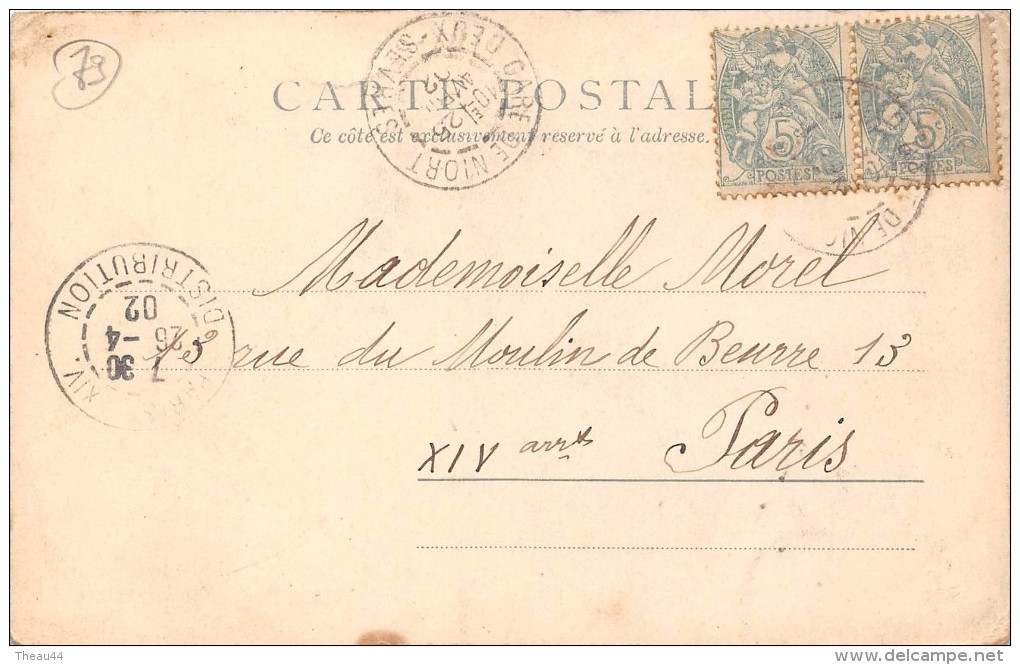 79
CARTE POSTALE
Ce côté est exclusivement reservé à l'adresse.
GARE DE NIORT
DEUX-SEVRES
5c
POSTES
5c
POSTES
Mademoiselle Morel
13 rue du Moulin de Beurre 13
XIV arrt Paris
PARIS XIV
DISTRIBUTION
7 30
26 -4
02
Theau44
www.delcampe.net